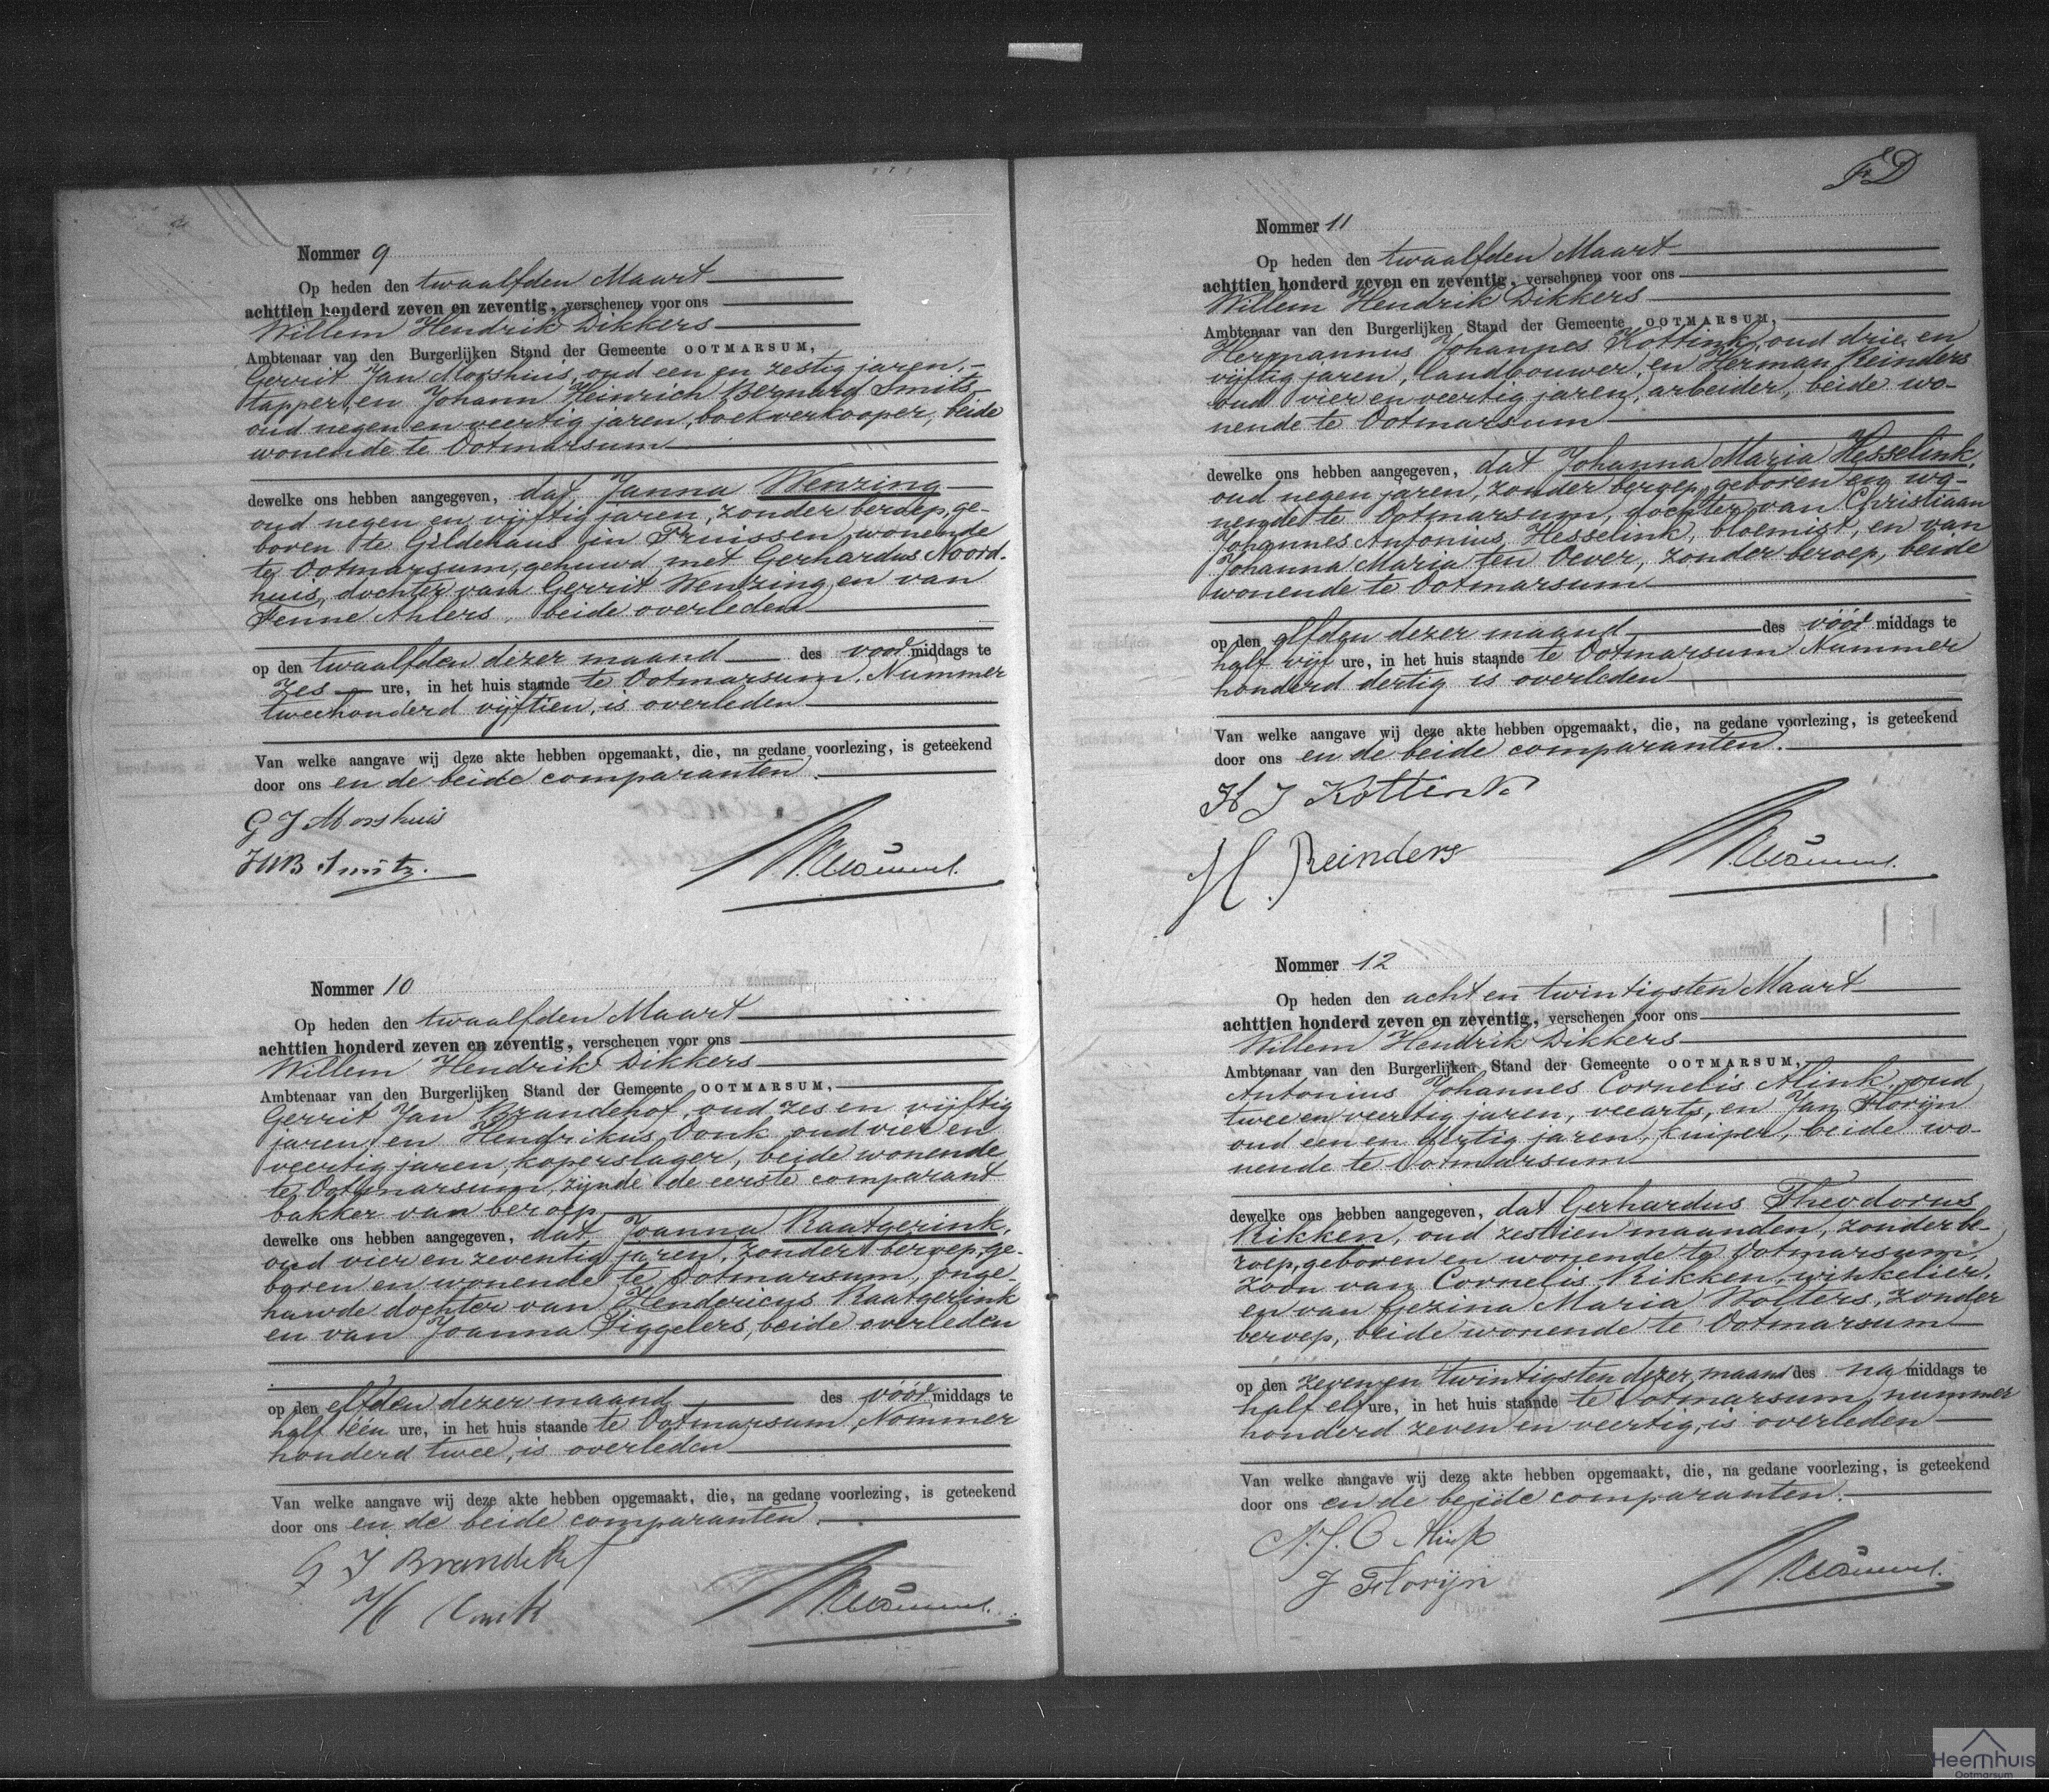 Nommer 9
Op heden den twaalfden Maart
achttien honderd zeven en zeventig, verschenen voor ons
Willem Hendrik Dikkers
Ambtenaar van den Burgerlijken Stand der Gemeente OOTMARSUM,
Gerrit Jan Morshuis, oud een en zestig jaren,
tapper, en Johann Heinrich Bernard Smits
oud negen en veertig jaren, boekverkooper, beide
wonende te Ootmarsum
dewelke ons hebben aangegeven, dat Janna Wenzing
oud negen en vijftig jaren, zonder beroep, ge-
boren te Gildehaus in Pruissen, wonende
te Ootmarsum, gehuwd met Gerhardus Noord-
huis, dochter van Gerrit Wentzing en van
Fenne Ahlers, beide overleden
op den twaalfden dezer maand des voor middags te
zes ure, in het huis staande te Ootmarsum, Nummer
tweehonderd vijftien, is overleden
Van welke aangave wij deze akte hebben opgemaakt, die, na gedane voorlezing, is geteekend
door ons en de beide comparanten.
G J Morshuis
JHB Smitz.
Nommer 10
Op heden den twaalfden Maart
achttien honderd zeven en zeventig, verschenen voor ons
Willem Hendrik Dikkers
Ambtenaar van den Burgerlijken Stand der Gemeente OOTMARSUM,
Gerrit Jan Brandehof, oud zes en vijftig
jaren, en Hendrikus Vonk oud vier en
veertig jaren, koperslager, beide wonende
te Ootmarsum, zijnde de eerste comparant
bakker van beroep
dewelke ons hebben aangegeven, dat Joanna Raatgerink,
oud vier en zeventig jaren, zonder beroep, ge-
boren en wonende te Ootmarsum, onge-
huwde dochter van Hendericus Raatgerink
en van Joanna Siggelers, beide overleden
op den elfden dezer maand des vóór middags te
half één ure, in het huis staande te Ootmarsum, Nommer
honderd twee, is overleden
Van welke aangave wij deze akte hebben opgemaakt, die, na gedane voorlezing, is geteekend
door ons en de beide comparanten.
G J Brandehof
H Vonk
FD
Nommer 11
Op heden den twaalfden Maart
achttien honderd zeven en zeventig, verschenen voor ons
Willem Hendrik Dikkers
Ambtenaar van den Burgerlijken Stand der Gemeente OOTMARSUM,
Hermannus Johannes Kottink, oud drie en
vijftig jaren, landbouwer, en Herman Reinders
oud vier en veertig jaren, arbeider, beide wo-
nende te Ootmarsum
dewelke ons hebben aangegeven, dat Johanna Maria Hesselink,
oud negen jaren, zonder beroep, geboren en wo-
nende te Ootmarsum, dochter van Christiaan
Johannes Antonius Hesselink, bloemist, en van
Johanna Maria ten Oever, zonder beroep, beide
wonende te Ootmarsum
op den elfden dezer maand des vóór middags te
half vijf ure, in het huis staande te Ootmarsum Nummer
honderd dertig is overleden
Van welke aangave wij deze akte hebben opgemaakt, die, na gedane voorlezing, is geteekend
door ons en de beide comparanten.
H J Kottink
H. Reinders
Nommer 12
Op heden den acht en twintigsten Maart
achttien honderd zeven en zeventig, verschenen voor ons
Willem Hendrik Dikkers
Ambtenaar van den Burgerlijken Stand der Gemeente OOTMARSUM,
Antonius Johannes Cornelis Alink, oud
twee en veertig jaren, veearts, en Jan Florijn
oud een en dertig jaren, kuiper, beide wo-
nende te Ootmarsum
dewelke ons hebben aangegeven, dat Gerhardus Theodorus
Rikken, oud zestien maanden, zonder be-
roep, geboren en wonende te Ootmarsum,
zoon van Cornelis Rikken, winkelier,
en van Gezina Maria Wolters, zonder
beroep, beide wonende te Ootmarsum
op den zeven en twintigsten dezer maand des na middags te
half elf ure, in het huis staande te Ootmarsum, nummer
honderd zeven en veertig, is overleden
Van welke aangave wij deze akte hebben opgemaakt, die, na gedane voorlezing, is geteekend
door ons en de beide comparanten.
A. J. C Alink
J Florijn
Heemhuis
Ootmarsum